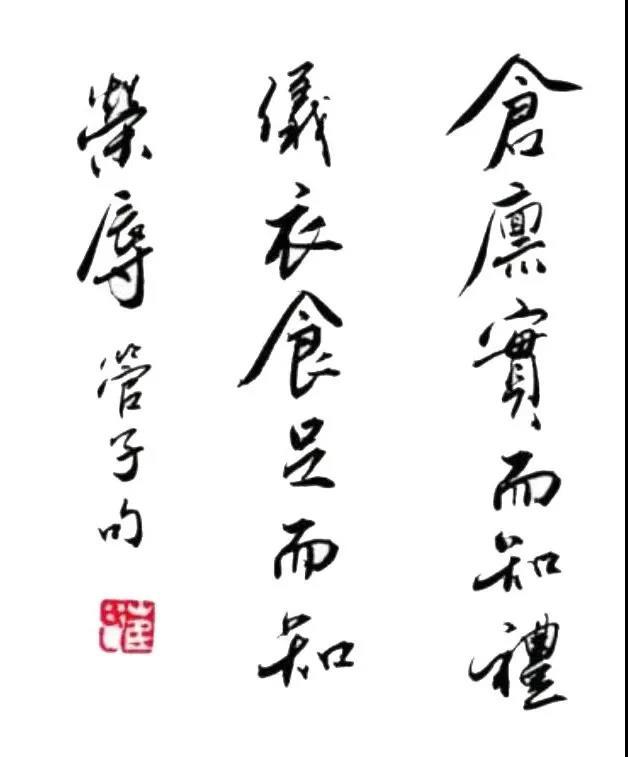 倉廪實而知禮
儀衣食足而知
榮辱 管子句